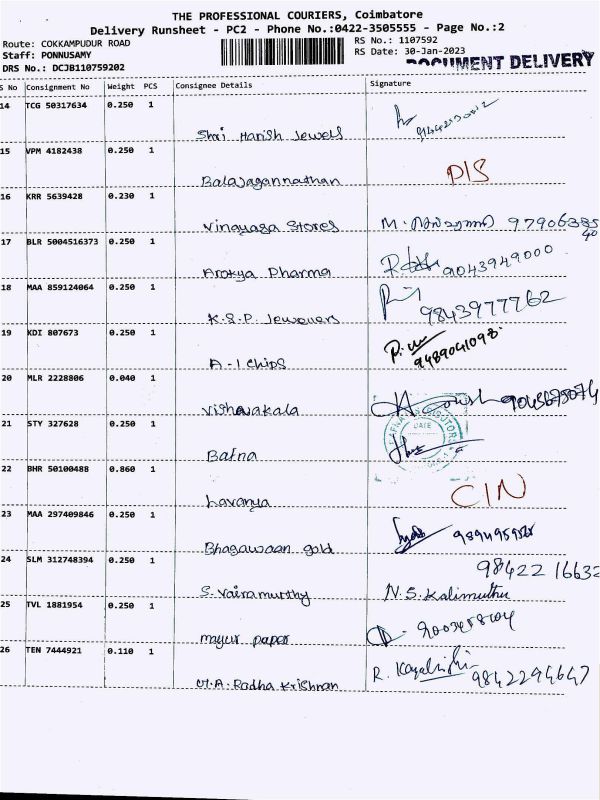 THE PROFESSIONAL COURIERS, Coimbatore
Delivery Runsheet - PC2 - Phone No.:0422-3505555 - Page No.:2
Route: COKKAMPUDUR ROAD RS No.: 1107592
Staff: PONNUSAMY RS Date: 30-Jan-2023
DRS No.: DCJB110759202 DOCUMENT DELIVERY
S No Consignment No Weight PCS Consignee Details Signature
14 TCG 50317634 0.250 1
Shri Harish Jewels
15 VPM 4182438 0.250 1
Balajagannathan D/S
16 KRR 5639428 0.230 1
Vinayaga Stores M. 9790638540
17 BLR 5004516373 0.250 1
Arokya Pharma 9043949000
18 MAA 859124064 0.250 1
K.S.P. Jewellers 9843977762
19 KDI 807673 0.250 1
A-1 Chips 9489041098
20 MLR 2228806 0.040 1
Vishavakala
21 STY 327628 0.250 1
Bafna DATE
22 BHR 50100488 0.860 1
Lavanya C/N
23 MAA 297409846 0.250 1
Bhagawaan gold
24 SLM 312748394 0.250 1 98422 16632
S. Vairamurthy N.S. Kalimuthu
25 TVL 1881954 0.250 1
mayur paper
26 TEN 7444921 0.110 1
M.A. Radha Krishnan R. 9842294647